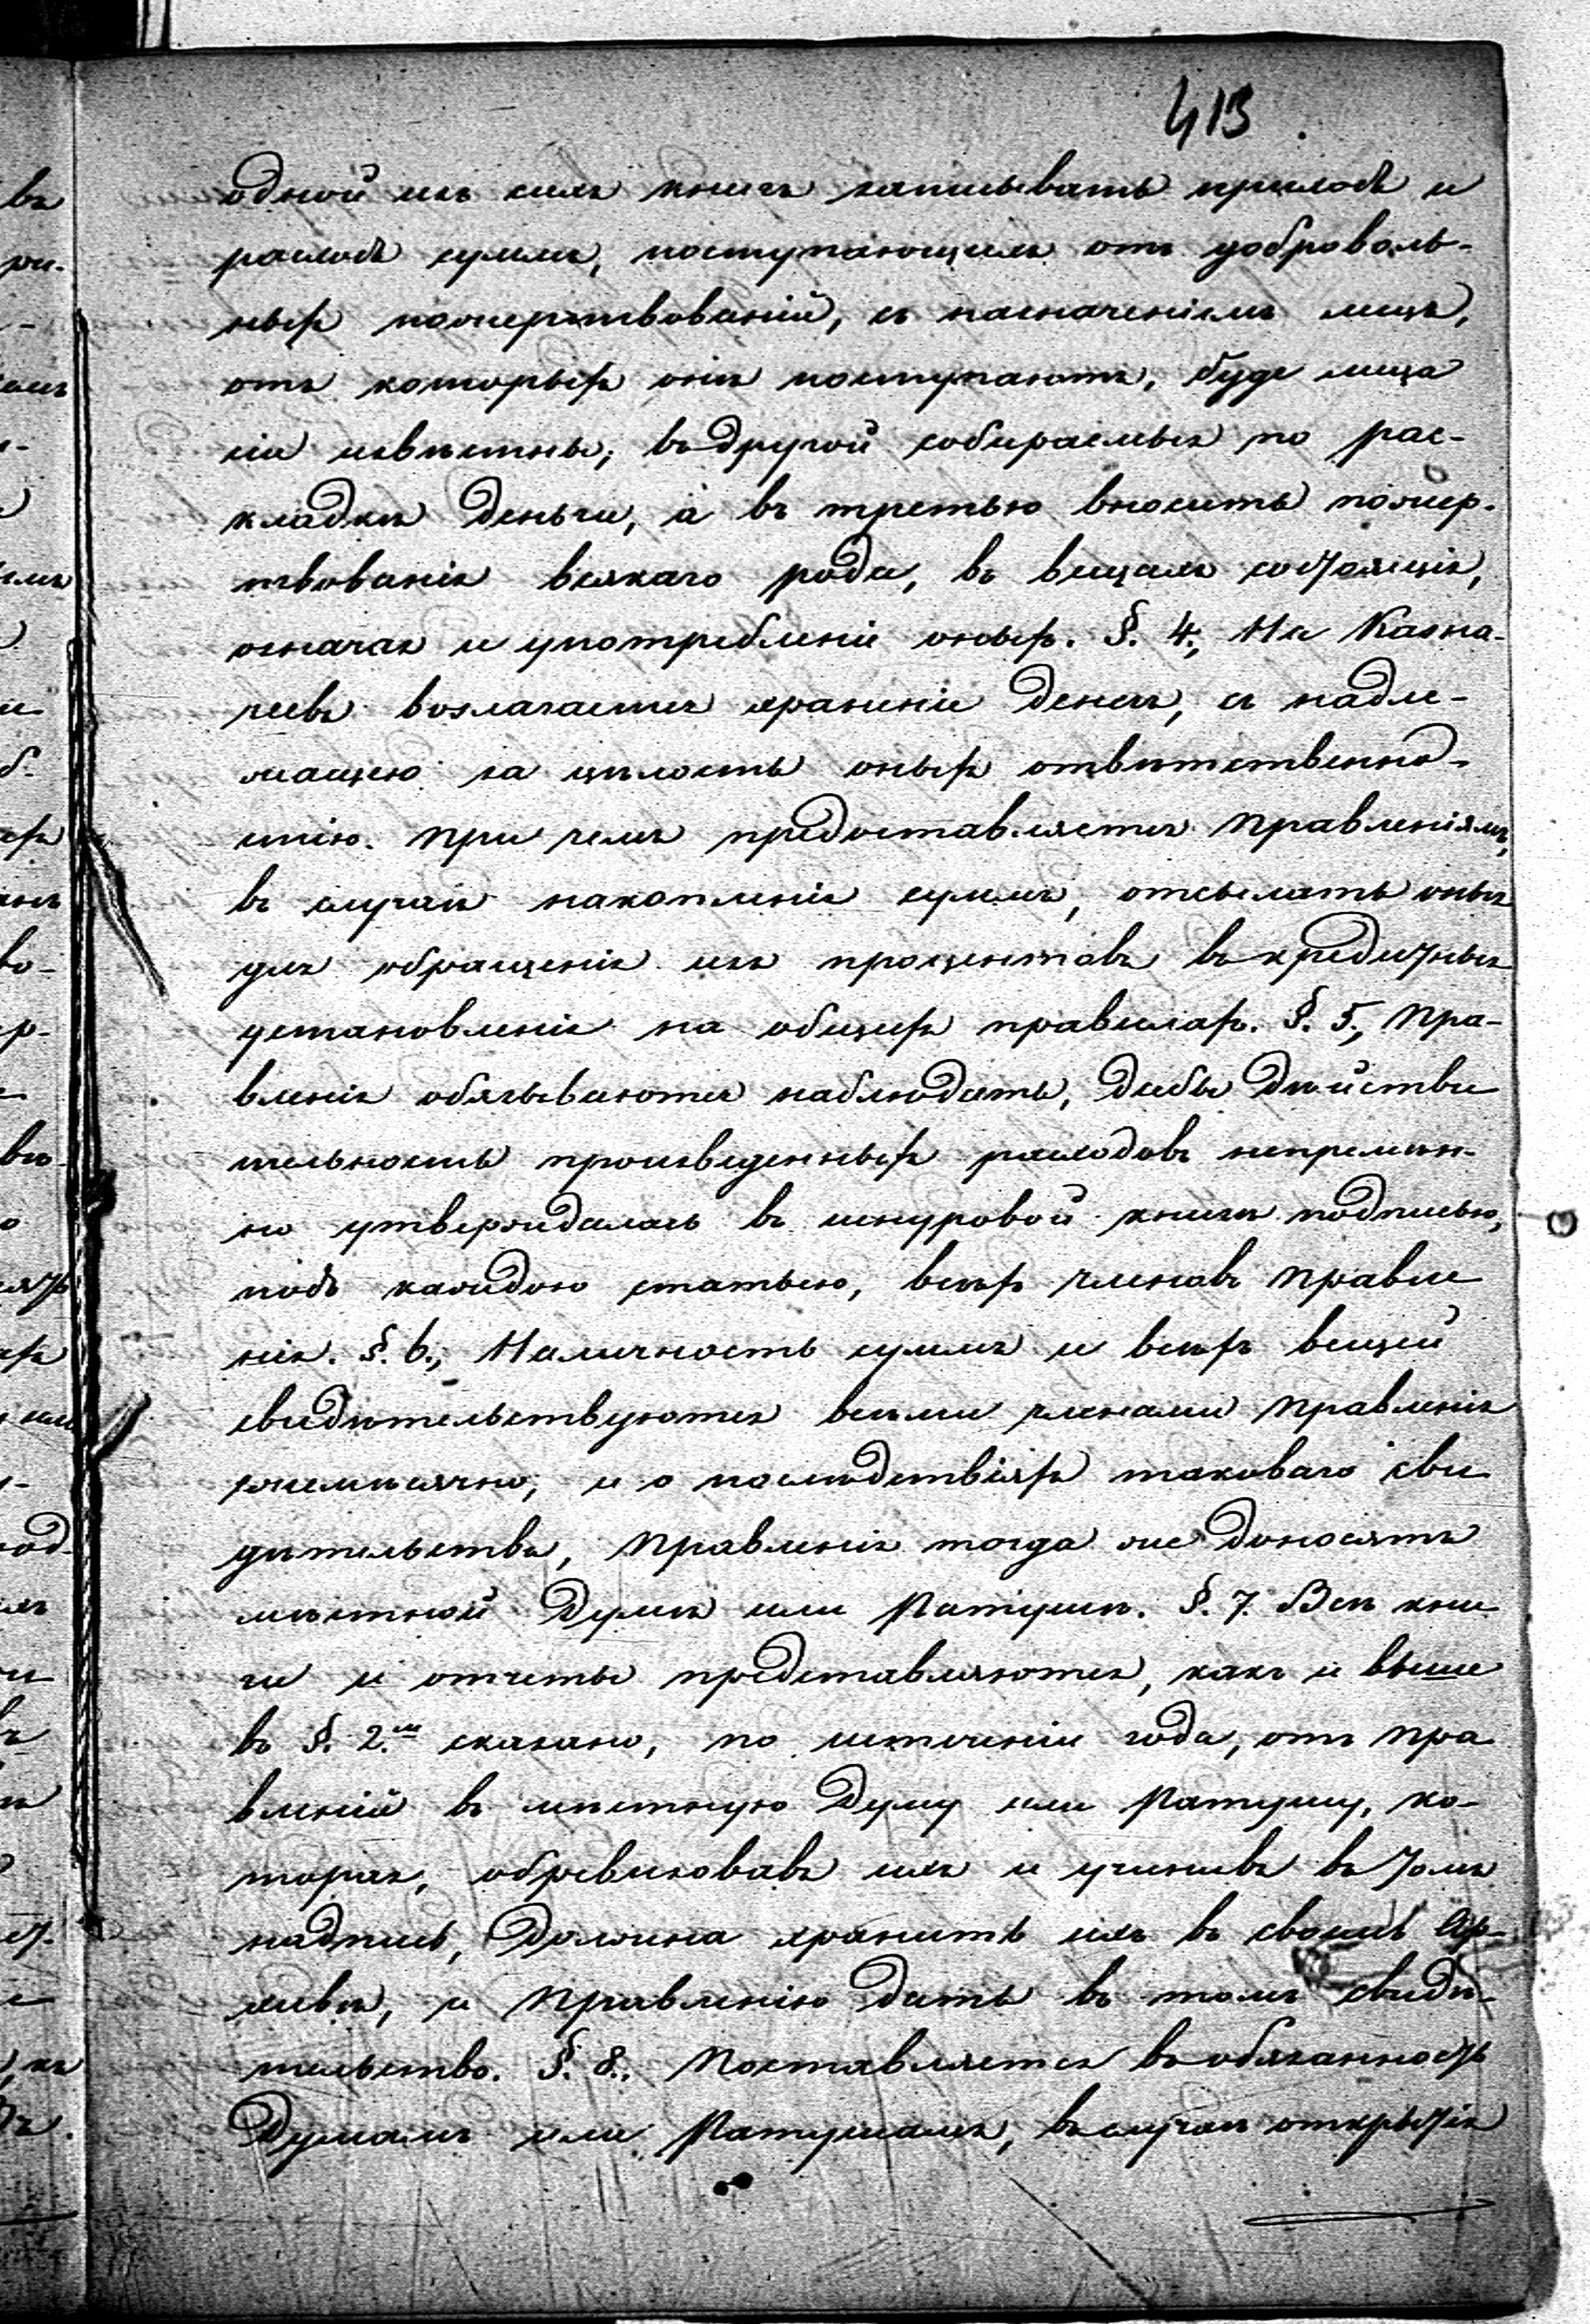 413
одной изъ сихъ книгъ записывать приходъ и
расходъ суммъ, поступающихъ отъ доброволь-
ныхъ пожертвованій, съ назначеніемъ лицъ,
отъ которыхъ онѣ поступаютъ, буде лица
сіи извѣстны; въ другой собираемыя по рас-
кладкѣ деньги, а въ третью вносить пожер-
твованія всякаго рода, въ вещахъ состоящія,
означая и употребленіе оныхъ. §. 4., На Казна-
чеевъ возлагается храненіе денегъ, съ надле-
жащею за цѣлость оныхъ отвѣтственно-
стію. При чемъ предоставляется Правленіямъ,
въ случаѣ накопленія суммъ, отсылать оныя
для обращенія изъ процентовъ въ кредитныя
установленія на общихъ правилахъ. §. 5., Пра-
вленія обязываются наблюдать, дабы дѣйстви
тельность произведенныхъ расходовъ непремѣн-
но утверждалась въ шнуровой книгѣ подписью,
подъ каждою статьею, всѣхъ членовъ Правле
нія. §. 6., Наличность суммъ и всѣхъ вещей
свидѣтельствуются всѣми членами Правленія
ежемѣсячно, и о послѣдствіяхъ таковаго сви
дѣтельства, Правленія тогда же доносятъ
мѣстной Думѣ или Ратушѣ. §. 7. Всѣ кни
ги и отчеты представляются, какъ и выше
въ §. 2.мъ сказано, по истеченіи года, отъ Пра
вленій въ мѣстную Думу или Ратушу, ко-
торая, обревизовавъ ихъ и учинивъ въ томъ
надпись, должна хранить ихъ въ своемъ Ар-
хивѣ, и Правленію дать въ томъ свидѣ-
тельство. §. 8., Поставляется въ обязанность
Думамъ или Ратушамъ, въ случаѣ открытія